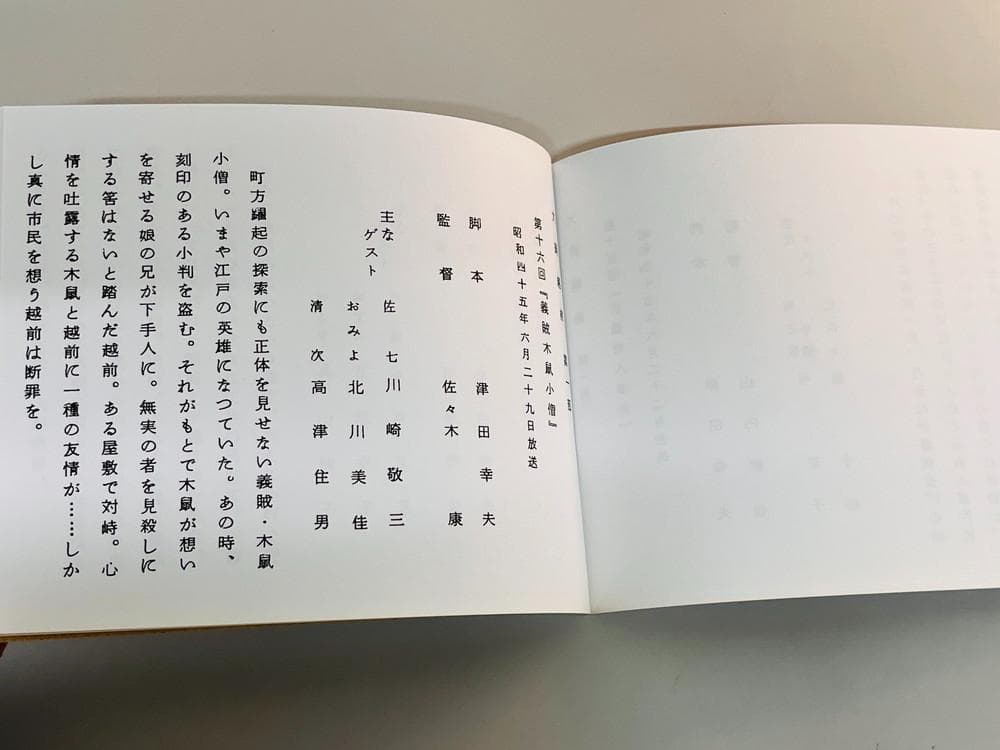 第十六回『義賊木鼠小僧』
昭和四十五年六月二十九日放送
脚本 津田幸夫
監督 佐々木康
主なゲスト
佐七 川崎敬三
おみよ 北川美佳
清次 高津住男
町方躍起の探索にも正体を見せない義賊・木鼠
小僧。いまや江戸の英雄になつていた。あの時、
刻印のある小判を盗む。それがもとで木鼠が想い
を寄せる娘の兄が下手人に。無実の者を見殺しに
する筈はないと踏んだ越前。ある屋敷で対峙。心
情を吐露する木鼠と越前に一種の友情が……しか
し真に市民を想う越前は断罪を。